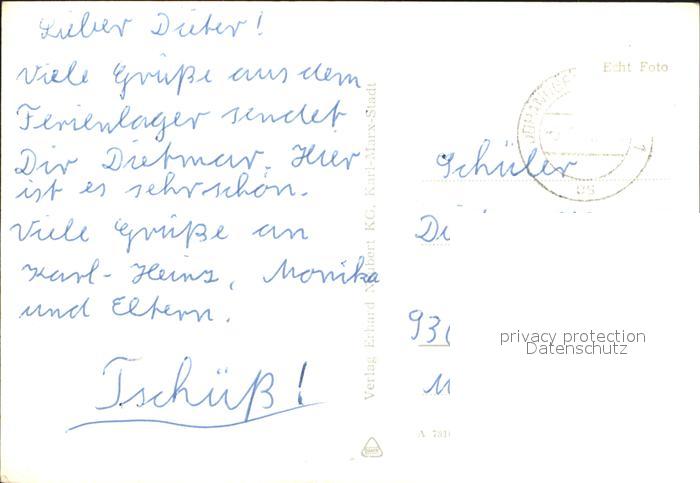 Lieber Dieter!
Viele Grüße aus dem
Ferienlager sendet
Dir Dietmar. Hier
ist es sehr schön.
Viele Grüße an
Karl-Heinz, Monika
und Eltern.
Tschüß!
Verlag Erhard Neubert KG, Karl-Marx-Stadt
Echt Foto
Schüler
Di
privacy protection
Datenschutz